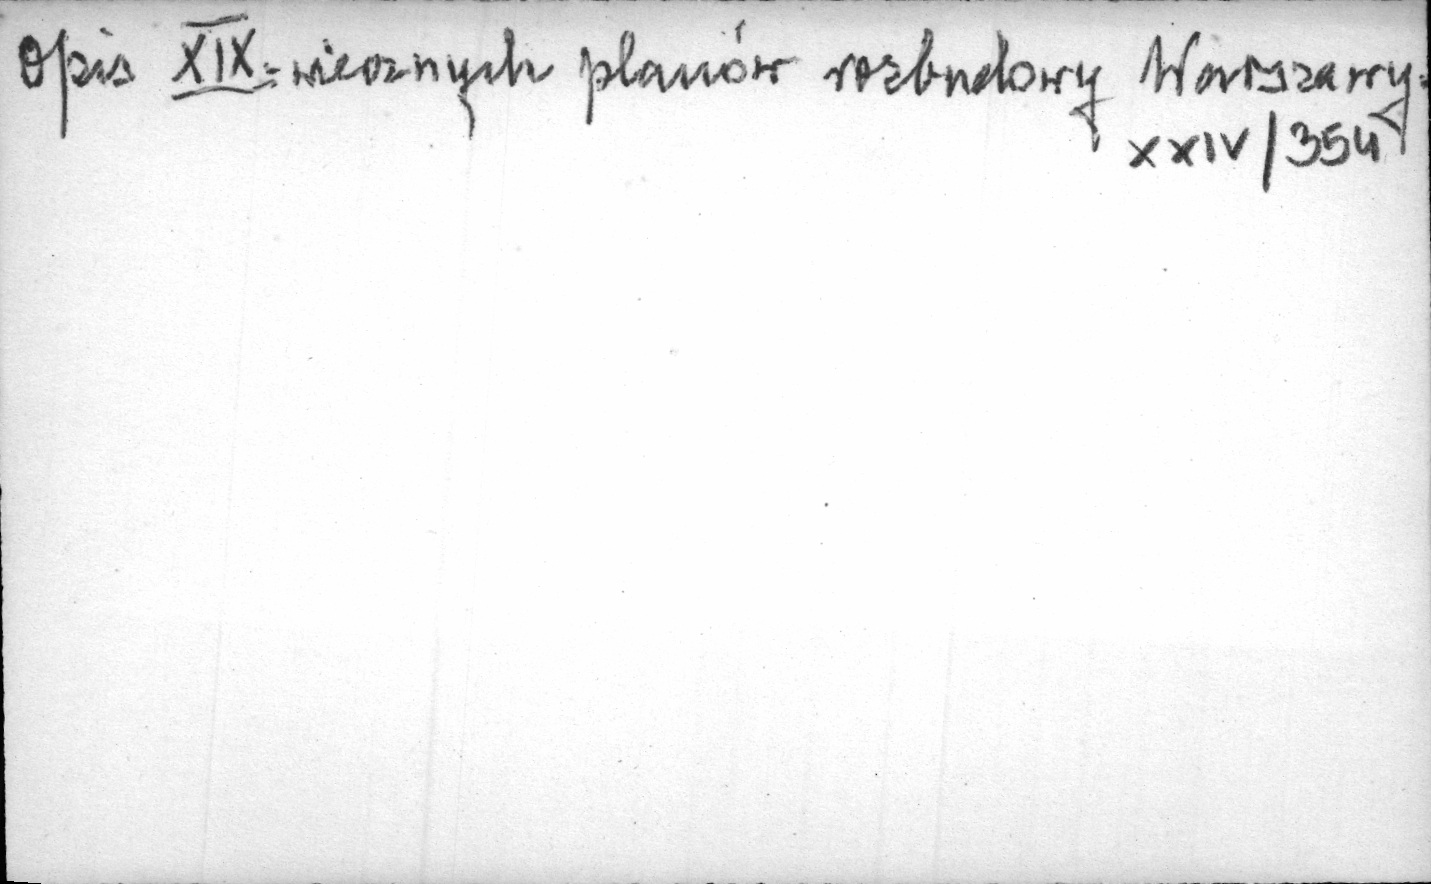 Opis XIX-wiecznych planów rozbudowy Warszawy.
XXIV/354